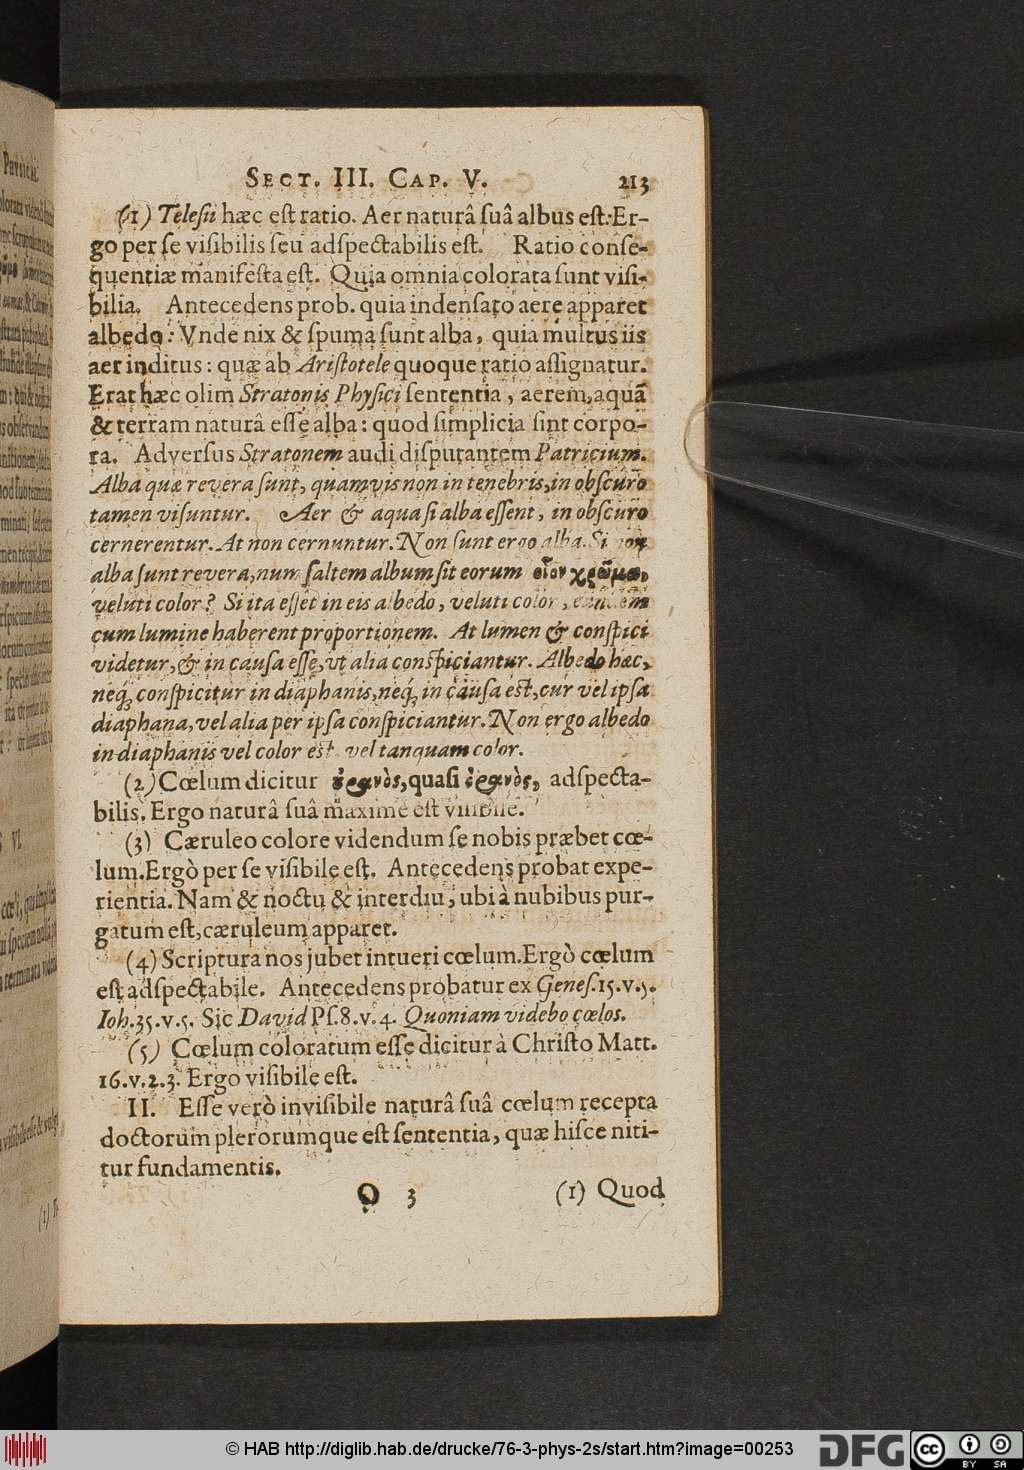 SECT. III. CAP. V. 213
(1) Telesii hæc est ratio. Aer naturâ suâ albus est. Er-
go per se visibilis seu adspectabilis est. Ratio conse-
quentiæ manifesta est. Quia omnia colorata sunt visi-
bilia. Antecedens prob. quia indensato aere apparet
albedo: Vnde nix & spuma sunt alba, quia multus iis
aer inditus: quæ ab Aristotele quoque ratio assignatur.
Erat hæc olim Stratonis Physici sententia, aerem, aquã
& terram naturâ esse alba: quod simplicia sint corpo-
ra. Adversus Stratonem audi disputantem Patricium.
Alba quæ revera sunt, quamvis non in tenebris, in obscuro
tamen visuntur. Aer & aqua si alba essent, in obscuro
cernerentur. At non cernuntur. Non sunt ergo alba. Si non
alba sunt revera, num saltem album sit eorum οἷον χρῶμα,
veluti color? Si ita esset in eis albedo, veluti color, eandem
cum lumine haberent proportionem. At lumen & conspici
videtur, & in causa esse, vt alia conspiciantur. Albedo hæc,
neq; conspicitur in diaphanis, neq; in causa est, cur vel ipsa
diaphana, vel alia per ipsa conspiciantur. Non ergo albedo
in diaphanis vel color est vel tanquam color.
(2) Cœlum dicitur ἐρανὸς, quasi ὁρανὸς, adspecta-
bilis. Ergo naturâ suâ maxime est visibile.
(3) Cæruleo colore videndum se nobis præbet cœ-
lum. Ergò per se visibile est. Antecedens probat expe-
rientia. Nam & noctu & interdiu, ubi à nubibus pur-
gatum est, cæruleum apparet.
(4) Scriptura nos jubet intueri cœlum. Ergò cœlum
est adspectabile. Antecedens probatur ex Genes. 15. v. 5.
Ioh. 35. v. 5. Sic David Ps. 8. v. 4. Quoniam videbo cœlos.
(5) Cœlum coloratum esse dicitur à Christo Matt.
16. v. 2. 3. Ergo visibile est.
II. Esse verò invisibile naturâ suâ cœlum recepta
doctorum plerorumque est sententia, quæ hisce niti-
tur fundamentis.
Q 3 (1) Quod
© HAB http://diglib.hab.de/drucke/76-3-phys-2s/start.htm?image=00253
DFG
cc BY SA